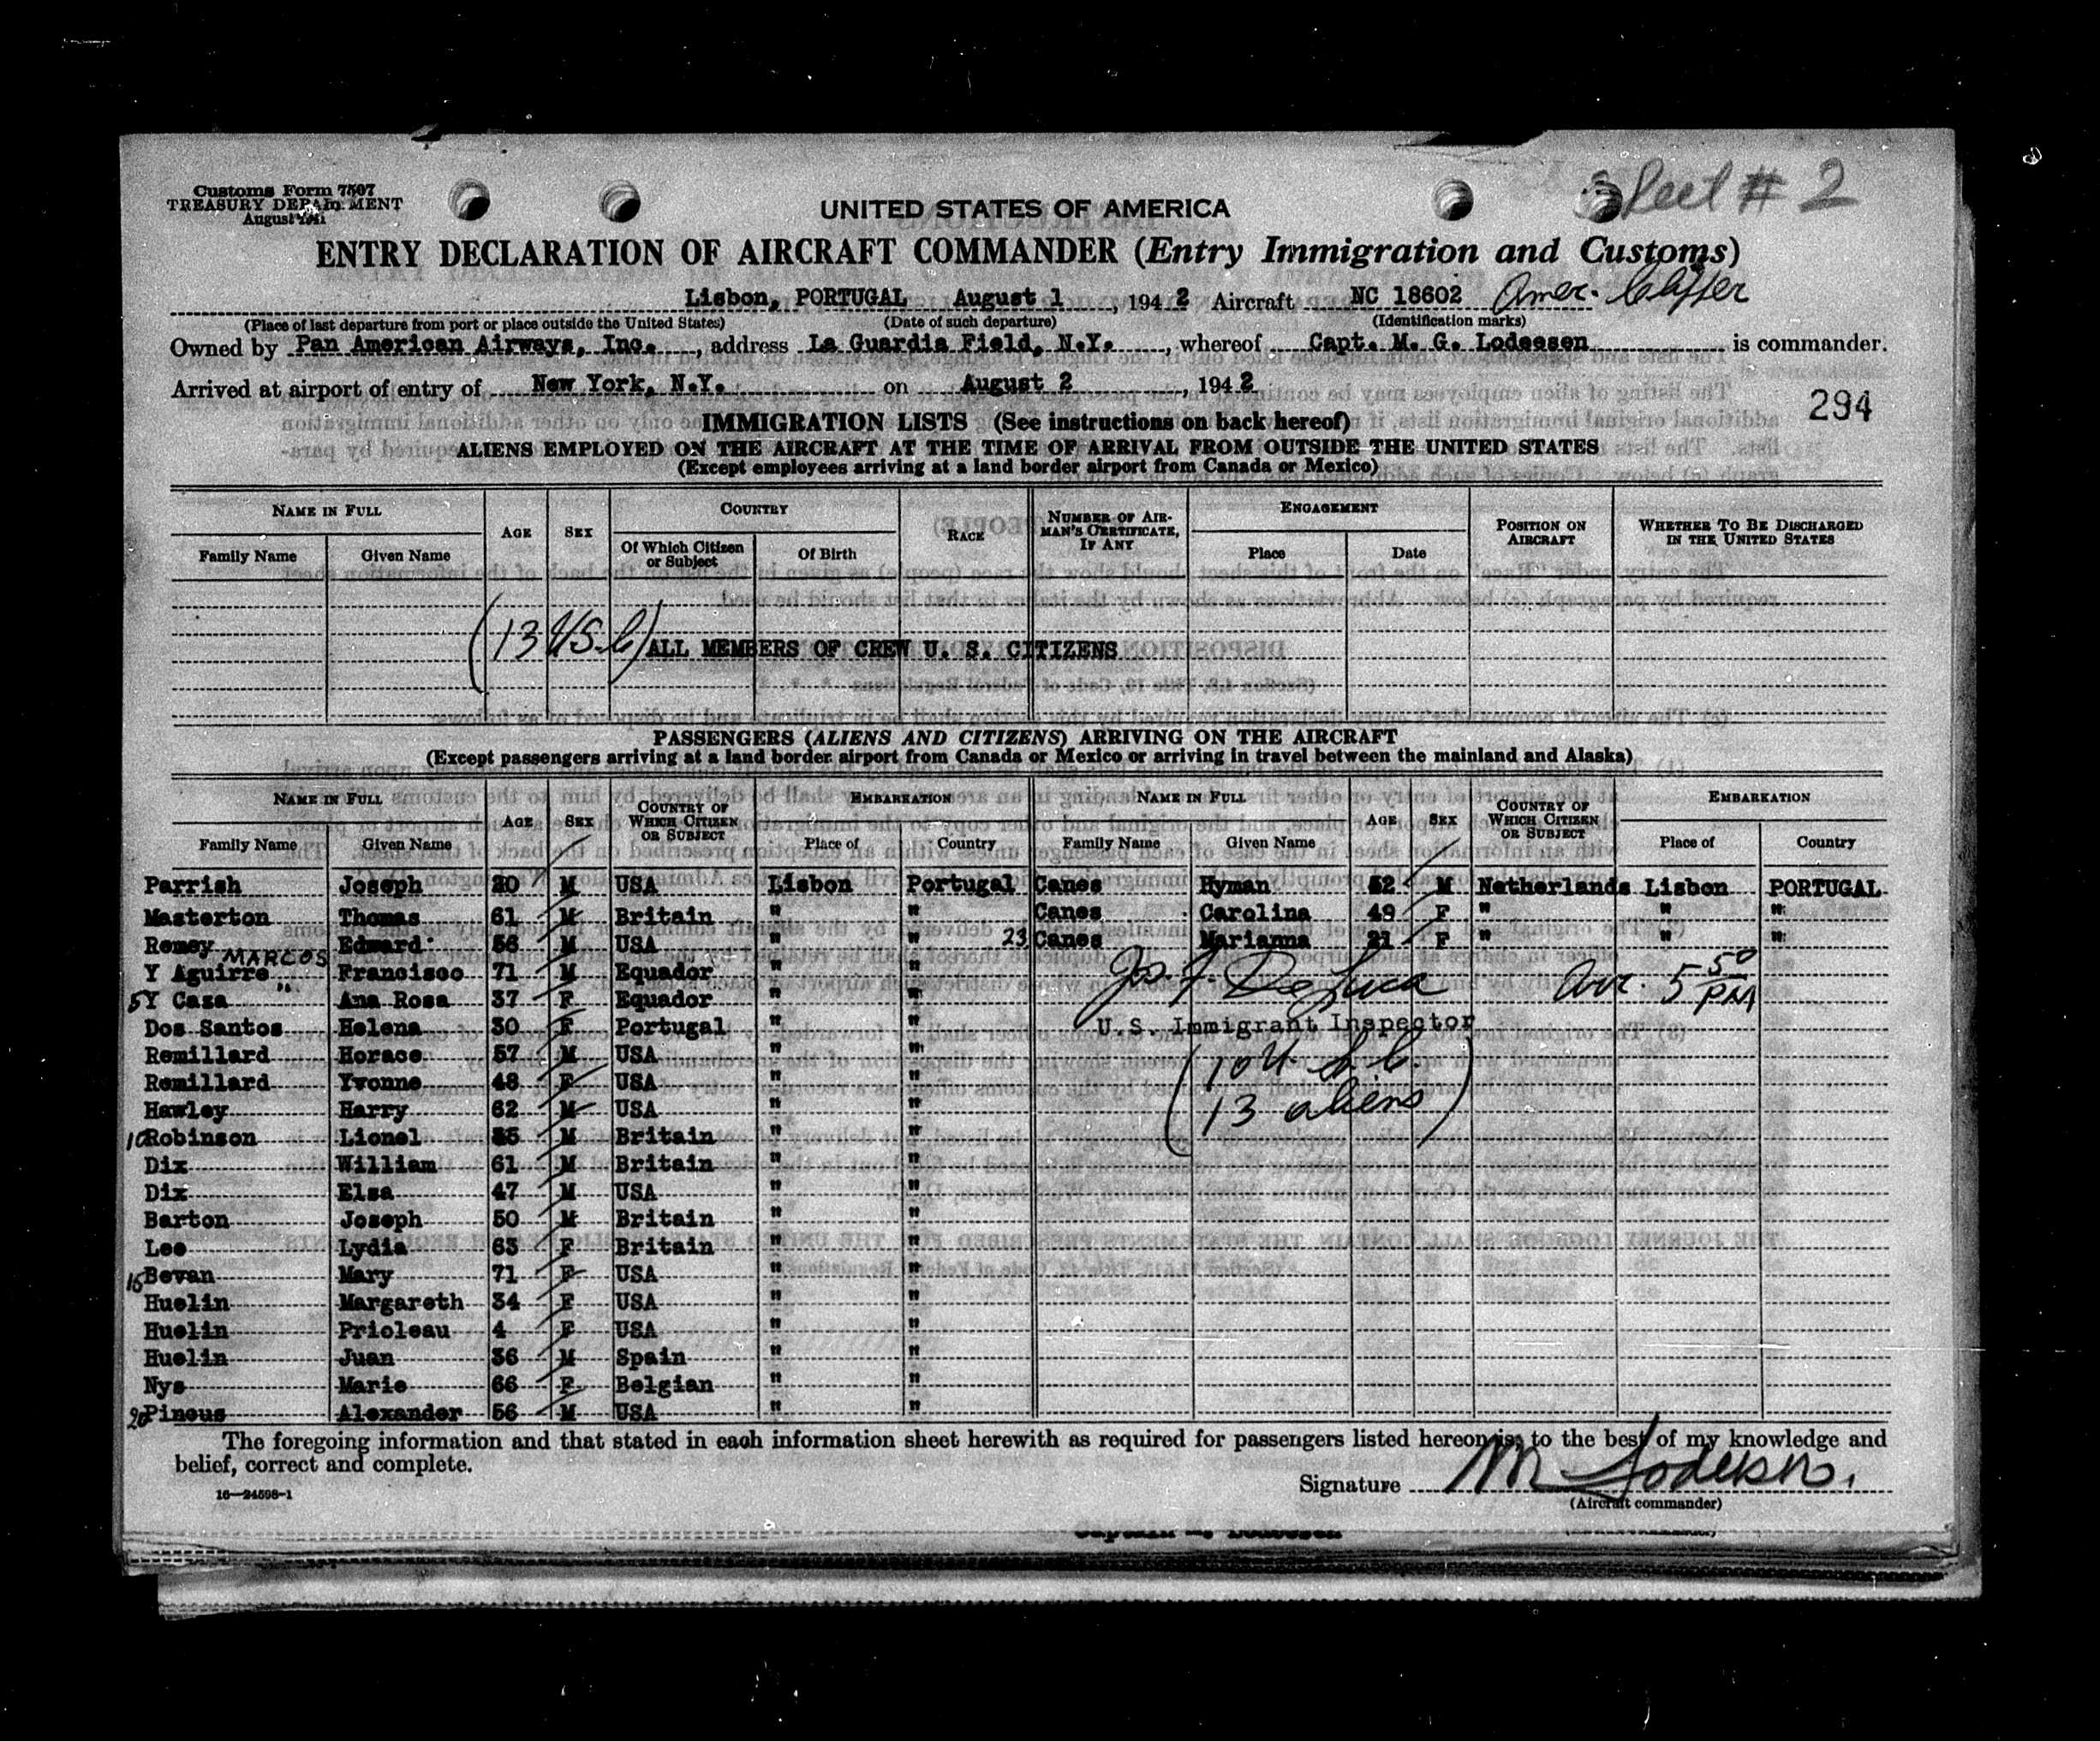 Sheet # 2
Customs Form 7507
TREASURY DEPARTMENT
August 1941
UNITED STATES OF AMERICA
ENTRY DECLARATION OF AIRCRAFT COMMANDER (Entry Immigration and Customs)
Lisbon, PORTUGAL August 1, 194 2 Aircraft NC 18602 Amer. Clipper
(Place of last departure from port or place outside the United States) (Date of such departure) (Identification marks)
Owned by Pan American Airways, Inc., address La Guardia Field, N.Y., whereof Capt. M. G. Lodeesen is commander.
Arrived at airport of entry of New York, N.Y. on August 2, 194 2
294
IMMIGRATION LISTS (See instructions on back hereof)
ALIENS EMPLOYED ON THE AIRCRAFT AT THE TIME OF ARRIVAL FROM OUTSIDE THE UNITED STATES
(Except employees arriving at a land border airport from Canada or Mexico)
NAME IN FULL AGE SEX COUNTRY RACE NUMBER OF AIRMAN'S CERTIFICATE, IF ANY ENGAGEMENT POSITION ON AIRCRAFT WHETHER TO BE DISCHARGED IN THE UNITED STATES
Family Name Given Name Of Which Citizen or Subject Of Birth Place Date
(13 USC) ALL MEMBERS OF CREW U. S. CITIZENS
PASSENGERS (ALIENS AND CITIZENS) ARRIVING ON THE AIRCRAFT
(Except passengers arriving at a land border airport from Canada or Mexico or arriving in travel between the mainland and Alaska)
NAME IN FULL AGE SEX COUNTRY OF WHICH CITIZEN OR SUBJECT EMBARKATION NAME IN FULL AGE SEX COUNTRY OF WHICH CITIZEN OR SUBJECT EMBARKATION
Family Name Given Name Place of Country Family Name Given Name Place of Country
Parrish Joseph 20 M USA Lisbon Portugal Canes Hyman 52 M Netherlands Lisbon PORTUGAL
Masterton Thomas 61 M Britain " " Canes Carolina 49 F " " "
Remey Edward 56 M USA " " 23 Canes Marianna 21 F " " "
MARCOS
Y Aguirre Francisco 71 M Equador " " Jos. F. DeLuca Arr. 5 50 PM
5 Y Casa " Ana Rosa 37 F Equador " "
Dos Santos Helena 30 F Portugal " " U.S. Immigrant Inspector
Remillard Horace 57 M USA " " (10 U.S.C.
Remillard Yvonne 48 F USA " "
Hawley Harry 62 M USA " " 13 aliens)
10 Robinson Lionel 35 M Britain " "
Dix William 61 M Britain " "
Dix Elsa 47 M USA " "
Barton Joseph 50 M Britain " "
Lee Lydia 63 F Britain " "
15 Bevan Mary 71 F USA " "
Huelin Margareth 34 F USA " "
Huelin Prioleau 4 F USA " "
Huelin Juan 36 M Spain " "
Nys Marie 66 F Belgian " "
20 Pincus Alexander 56 M USA " "
The foregoing information and that stated in each information sheet herewith as required for passengers listed hereon is, to the best of my knowledge and
belief, correct and complete.
16—24598-1
Signature M Lodeesen.
(Aircraft commander)